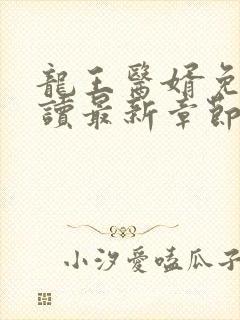 龍王醫婿免
讀最新章節
小汐愛嗑瓜子